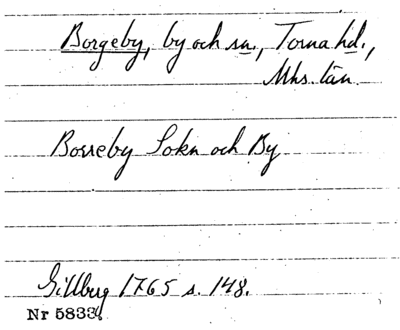 Borgeby, by och sn., Torna hd.,
Mhs. län
Borreby Sokn och By
Gillberg 1765 s. 148.
Nr 5833.